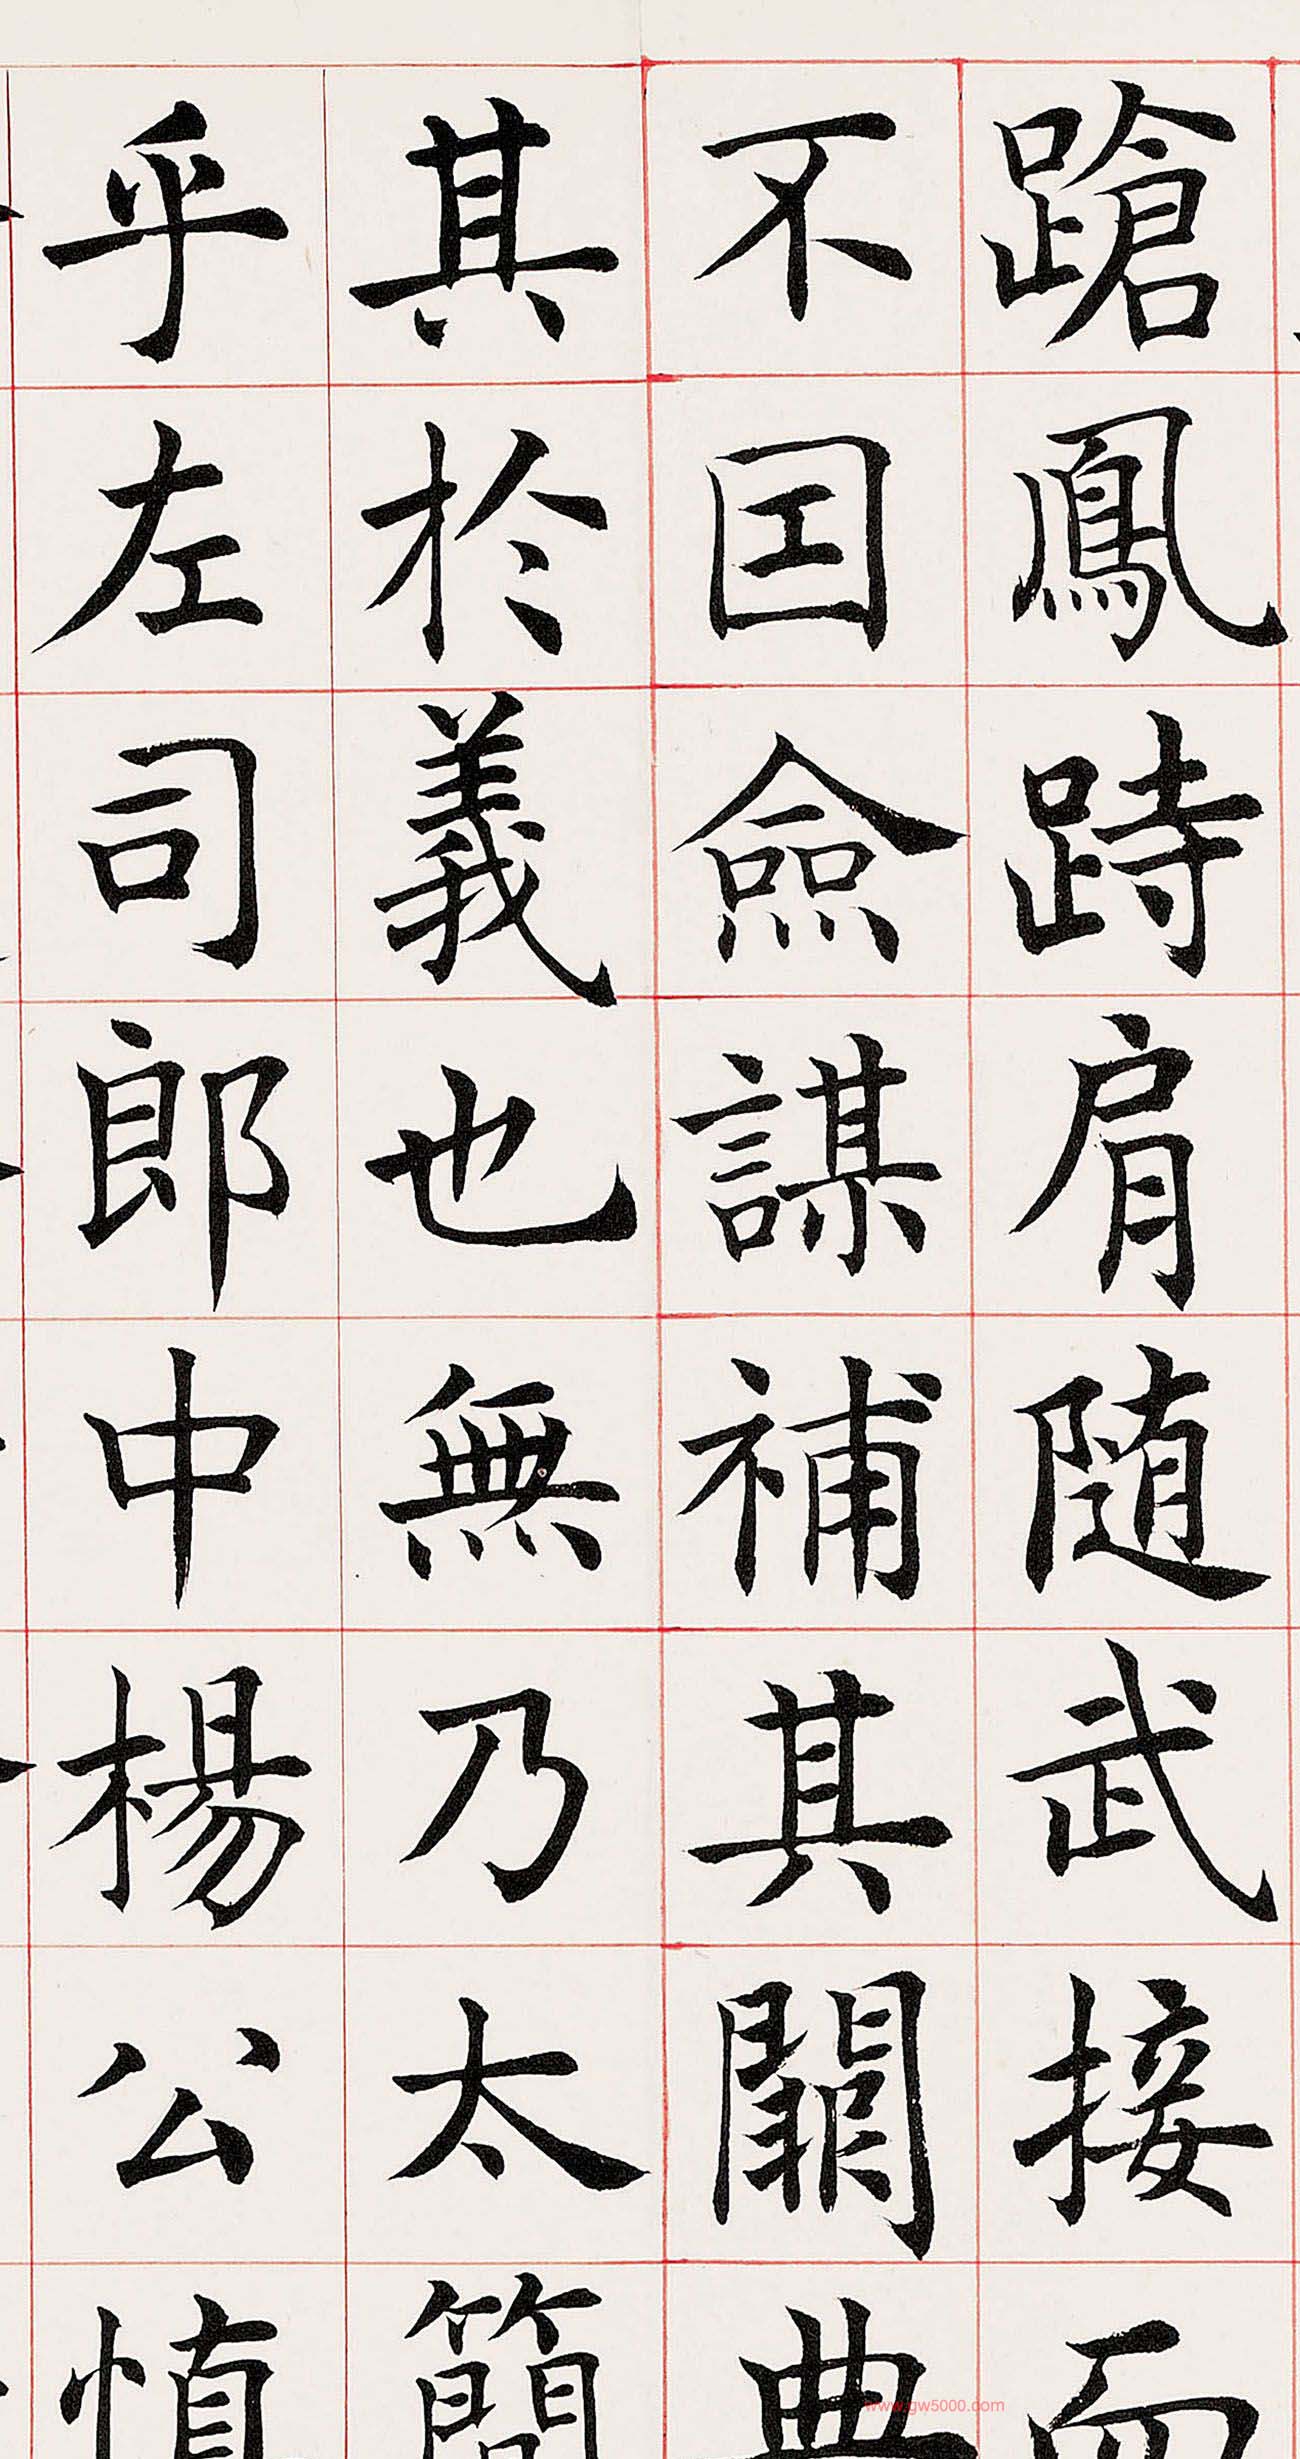 蹌鳳跱肩随武接而
不囙僉謀補其闕典
其於義也無乃太簡
乎左司郎中楊公慎
www.gw5000.com